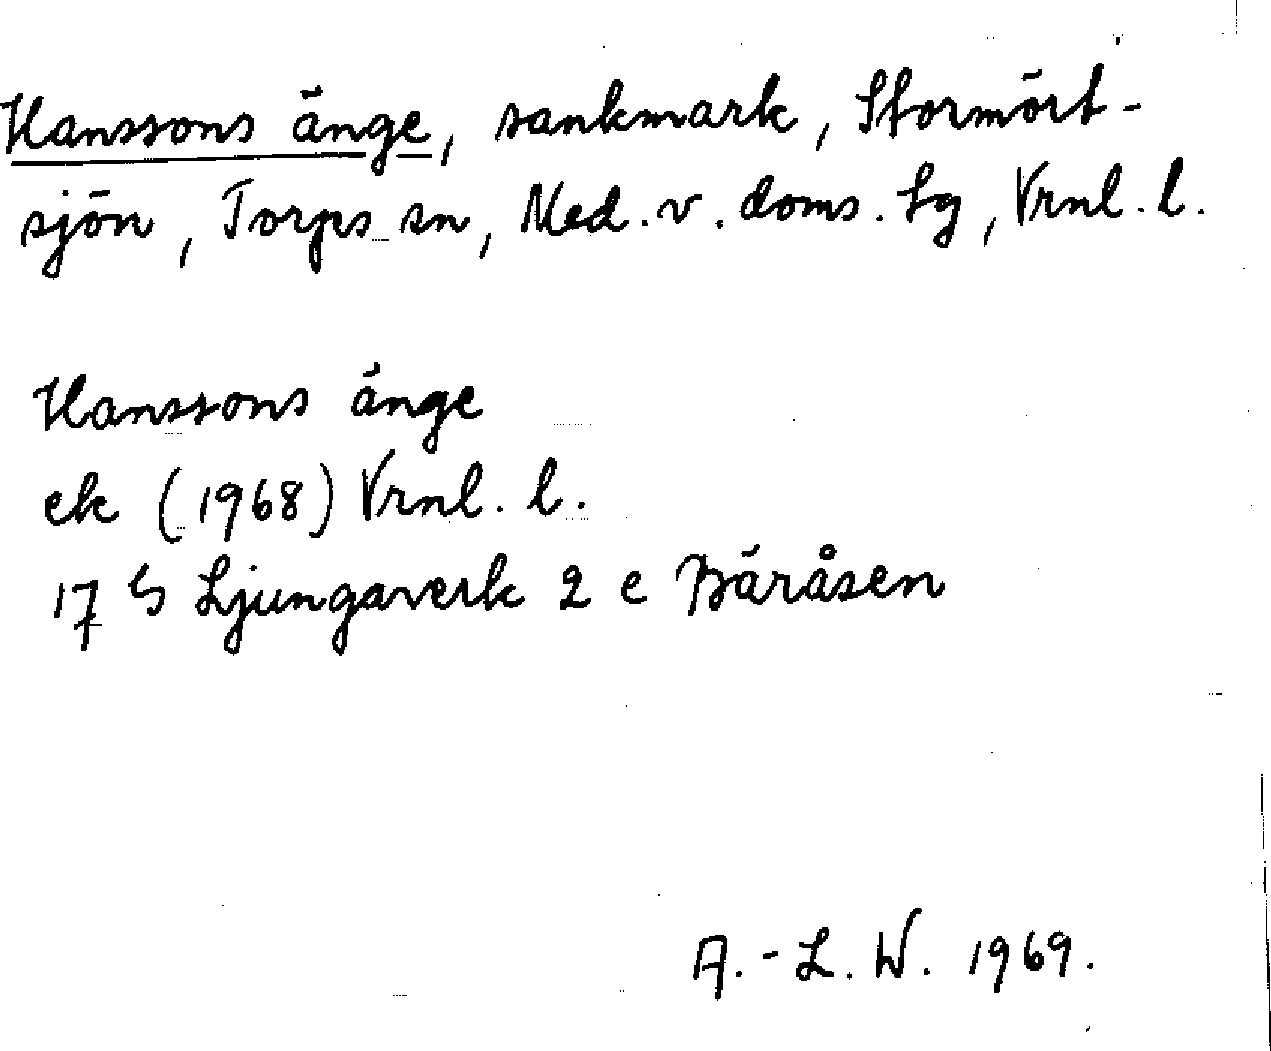 Hanssons änge, sankmark, Stormört-
sjön, Torps sn, Med. v. doms. lg, Vrnl. l.
Hanssons änge
ek (1968) Vrnl. l.
17 G Ljungaverk 2 e Bäråsen
A.-L. W. 1969.